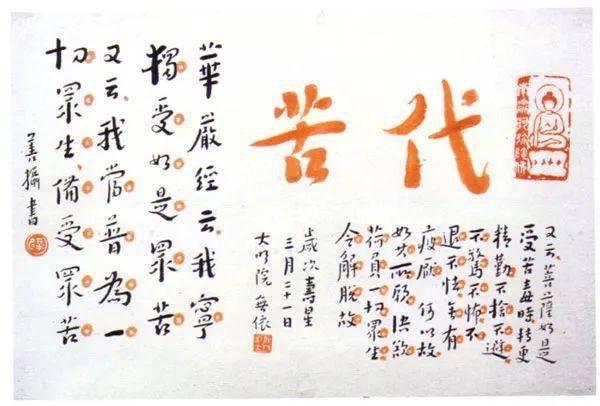 代苦
又云菩薩如是
受苦毒時轉更
精勤不捨不避
不驚不怖不
退不怯無有
疲厭何以故
如其所願決欲
荷負一切眾生
令解脫故
歲次壽星
三月二十一日
大明院無依
華嚴經云我寧
獨受如是眾苦
又云我當普為一
切眾生備受眾苦
善攝書